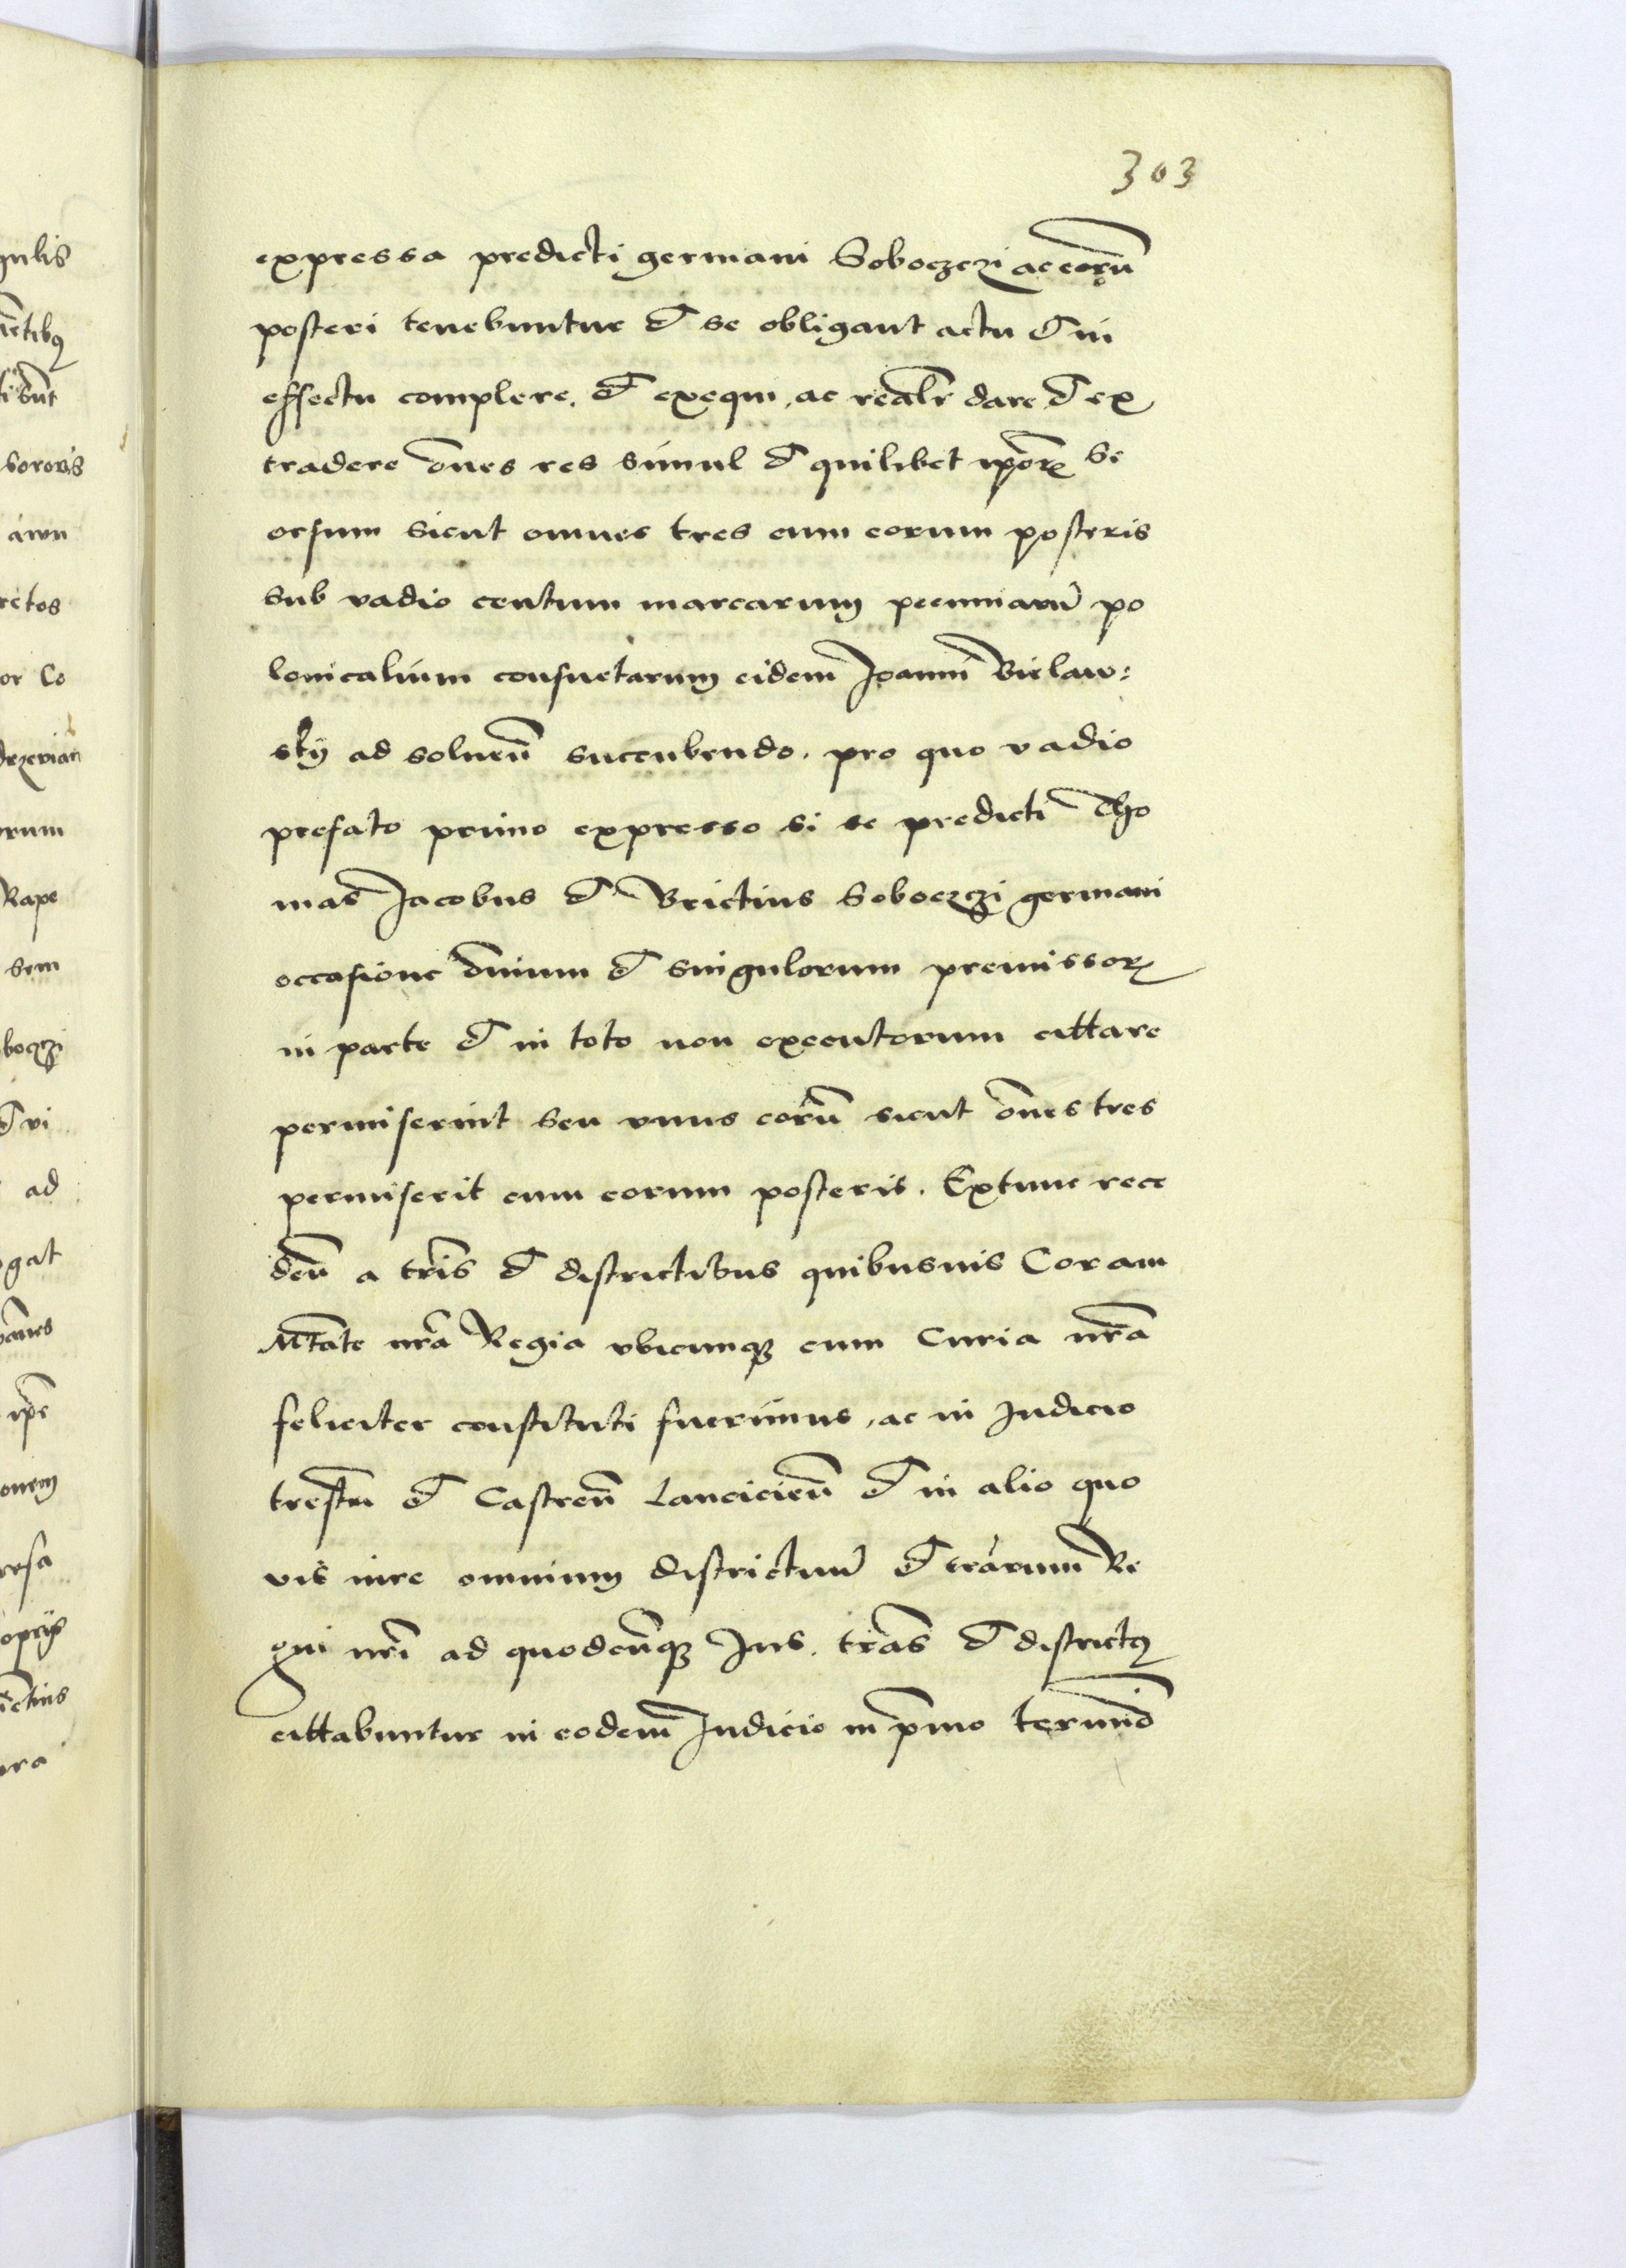 303
expressa predicti germani Soboczczi ac eorū
posteri tenebuntur et se obligant actu et in
effectu complere. et exequi, ac realr̄ dare et ex
tradere oēs res simul et quilibet ip̄or̄ se
orsum sicut omnes tres cum eorum posteris
sub vadio centum marcarum pecuniarū po
lonicalium consuetarum eidem Joanni Bielaw:
skÿ ad soluen̄ succubendo. pro quo vadio
prefato primo expresso si se predicti Tho
mas Jacobus et Brictius Soboczczi germani
occasione oīnium et singulorum premissor̄
in parte et in toto non executorum cittare
permiserint seu vnus eorū sicut oēs tres
permiserit cum eorum posteris. Extunc rece
den̄ a tris̄ et districtibus quibusuis Coram
Mtate nr̄a Regia vbicumq₃ cum Curia nr̄a
feliciter constituti fuerimus, ac in Judicio
trestrī et Castren̄ Lancicien̄ et in alio quo
vis iure omnium districtuū et trārum Re
gni nr̄i ad quodcūq₃ Jus. trās et districtꝰ
cittabuntur in eodem Judicio in p̄mo termino